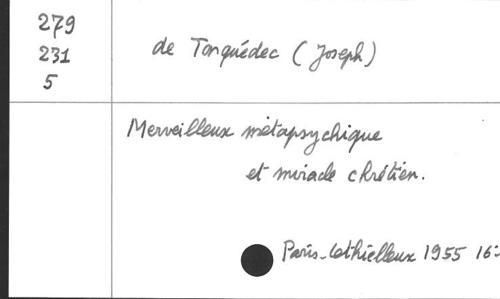 279
231
5
de Tonquédec (Joseph)
Merveilleux métapsychique
et miracle chrétien.
Paris-Lethielleux 1955 16: